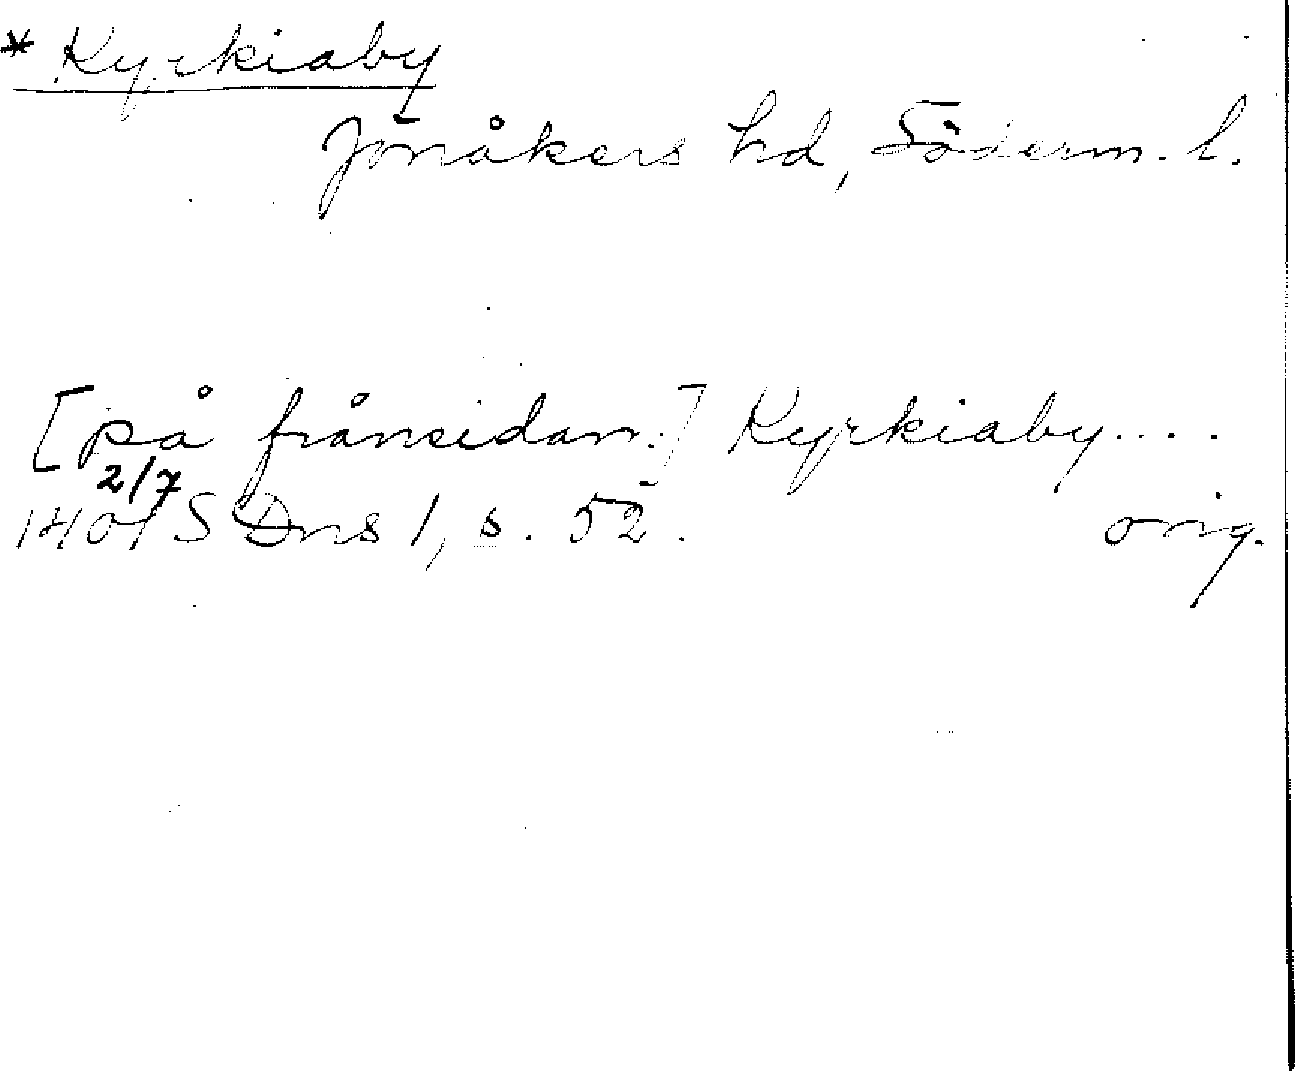 * Kyrkiaby
Jönåkers hd, Söderm. l.
[på frånsidan.] Kyrkiaby....
2/7
1401 S Dns 1, s. 52. orig.